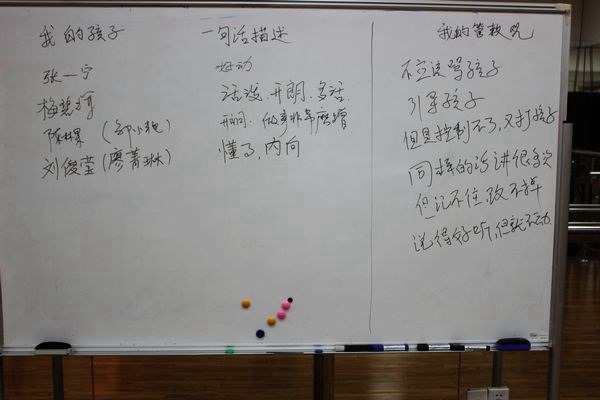 我的孩子
张一宁
梅慧
陈林 (
刘俊莹 (廖菁琳)
一句话描述
好动
活泼、开朗、多话
开朗、做事非常磨蹭
懂事,内向
我的管教观
不应该骂孩子
引导孩子
但是控制不了,又打孩子
同样的话讲很多次
但记不住,改不掉
说得好听,但就不动